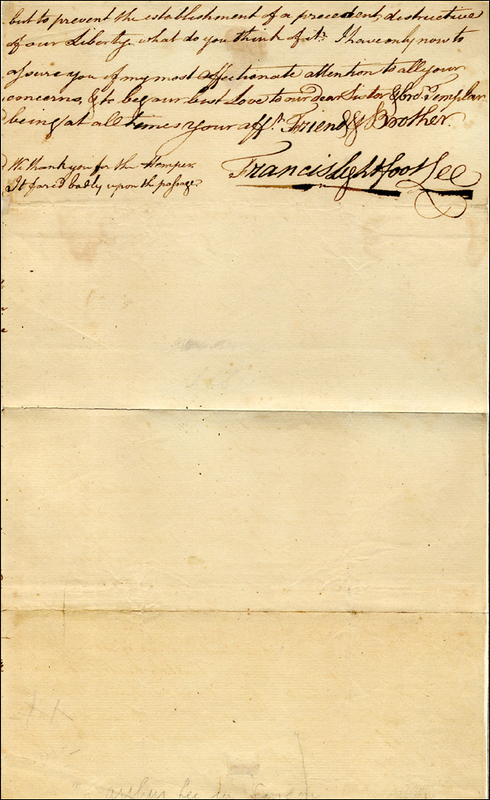 but to prevent the establishment of a precedent, destructive
of our Liberty. what do you think of it? I have only now to
assure you of my most affectionate attention to all your
concerns, & to beg our best Love to our dear Sister &
being at all times your aff.t Friend & Brother.
We thank you for the
It fared badly upon the passage.
Francis Lightfoot Lee
Arthur Lee in London